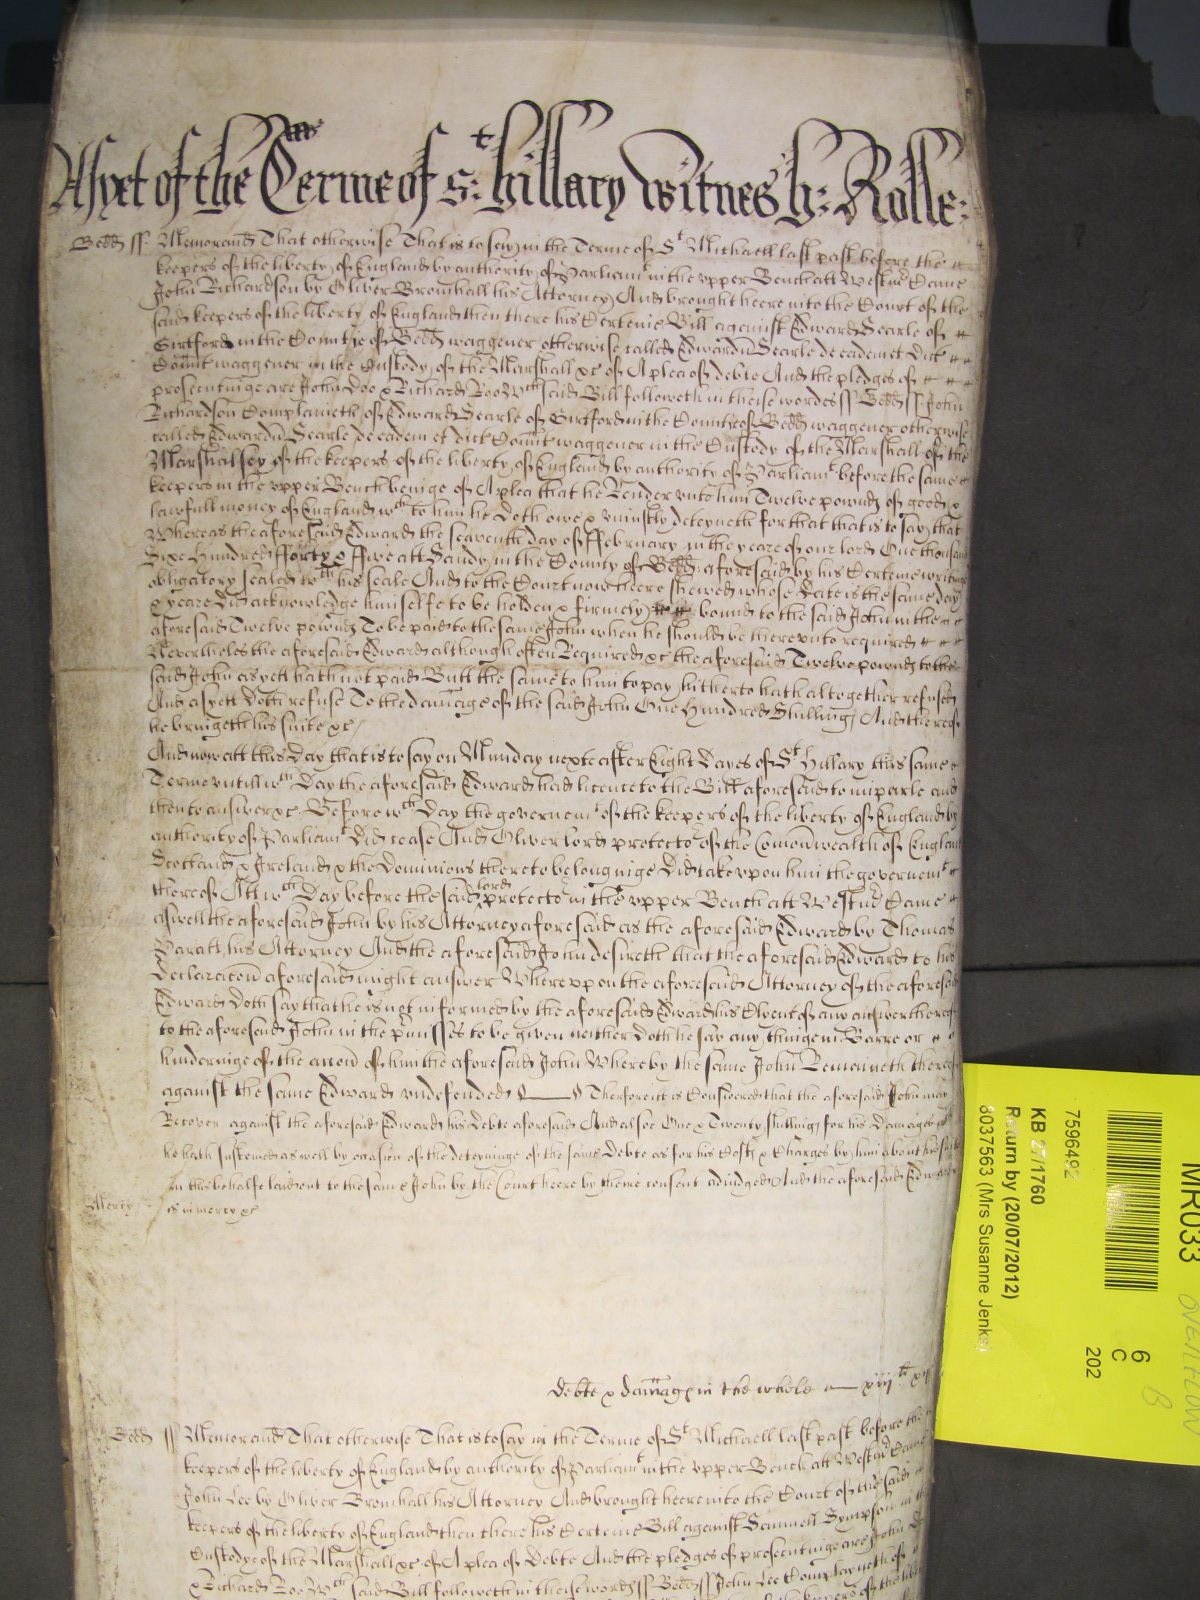 As yet of the Terme of St: hillary witnes h: Rolle:
Bedd ss Memorand That otherwise That is to say in the Terme of St Michaell last past before the
keepers of the liberty of England by authority of Parliamt in the upper Bench att Westmr Came
John Richardson by Oliver Bromhall his Attorney And brought heere into the Court of the
said keepers of the liberty of England then there his Certeine Bill against Edward Searle of
Girtford in the Countye of Bedd waggener otherwise called Edwardu Searle de eadem et dict
Comit waggener in the Custody of the Marshall &c of A plea of debte And the pledges of
prosecutinge are John Doe & Richard Roo Wch said Bill followeth in theise wordes ss Bedd ss John
Richardson Complaineth of Edward Searle of Girtford in the Countye of Bedd waggener otherwise
called Edwardu Searle de eadem et dict Comit waggener in the Custody of the Marshall of the
Marshalsey of the keepers of the liberty of England by authority of Parliamt before the same
keepers in the upper Bench beinge of A plea that he Render unto him Twelve pownds of good &
lawfull money of England wch to him he doth owe & uniustly deteyneth for that that is to say that
Whereas the aforesaid Edward the seaventh day of ffebruary in the yeare of our lord One thousand
Sixe Hundred fforty & ffive att Sandy in the County of Bedd aforesaid by his Certeine writinge
obligatory sealed wth his seale And to the Court now heere shewed whose date is the same day
& yeare did acknowledge himselfe to be holden & firmely bound to the said John in the
aforesaid Twelve pownds To be paid to the same John when he should be thereunto required
Neverthelesse the aforesaid Edward although often Required &c the aforesaid Twelve pownds to the
said John as yett hath not paid Butt the same to him to pay hitherto hath altogether refused
And as yett doth refuse To the damage of the said John One Hundred Shillings And thereof
he bringeth his suite &c
And now att this day that is to say on Munday nexte after Eight dayes of St Hillary this same
Terme untill wch day the aforesaid Edward had licence to the Bill aforesaid to imparle and
then to answer &c Before wch day the governemt of the keepers of the liberty of England by
authority of Parliamt did cease And Oliver lord protector of the Comonwealth of England
Scotland & Ireland & the dominions thereto belonginge did take upon him the governemt
thereof Att wch day before the said lord protector in the upper Bench att Westmr Came
aswell the aforesaid John by his Attorney aforesaid as the aforesaid Edward by Thomas
Paratt his Attorney And the aforesaid John desireth that the aforesaid Edward to his
declaracon aforesaid might answer Whereupon the aforesaid Attorney of the aforesaid
Edward doth say that he is not informed by the aforesaid Edward his Clyent of any answer thereof
to the aforesaid John in the pmisses to be given neither doth he say any thinge in Barre or
hinderinge of the accon of him the aforesaid John Whereby the same John Remaineth thereof
against the same Edward undefended Therfore it is Considered that the aforesaid John may
Recover against the aforesaid Edward his debte aforesaid And alsoe One & Twenty shillings for his damages wch
he hath susteined as well by occasion of the deteyninge of the same debte as for his Costs & Charges by him about his suite
in this behalfe laid out to the same John by the Court heere by theire consent adiudged And the aforesaid Edward
Mercy is in mercy &c
debte & damags in the whole xiijli xijd
Bedd ss Memorand That otherwise That is to say in the Terme of St Michaell last past before the
keepers of the liberty of England by authority of Parliamt in the upper Bench att Westmr Came
John Lee by Oliver Bromhall his Attorney And brought heere into the Court of the said
keepers of the liberty of England then there his Certeine Bill against Samuell Sympson in the
Custodye of the Marshall &c of A plea of debte And the pledges of prosecutinge are John Doe
& Richard Roo Wch said Bill followeth in theise words ss Bedd ss John Lee Complayneth of
MR033
7596492
KB 27/1760
Return by (20/07/2012)
8037563 (Mrs Susanne Jenks)
6
C
202
OVERFLOW
B